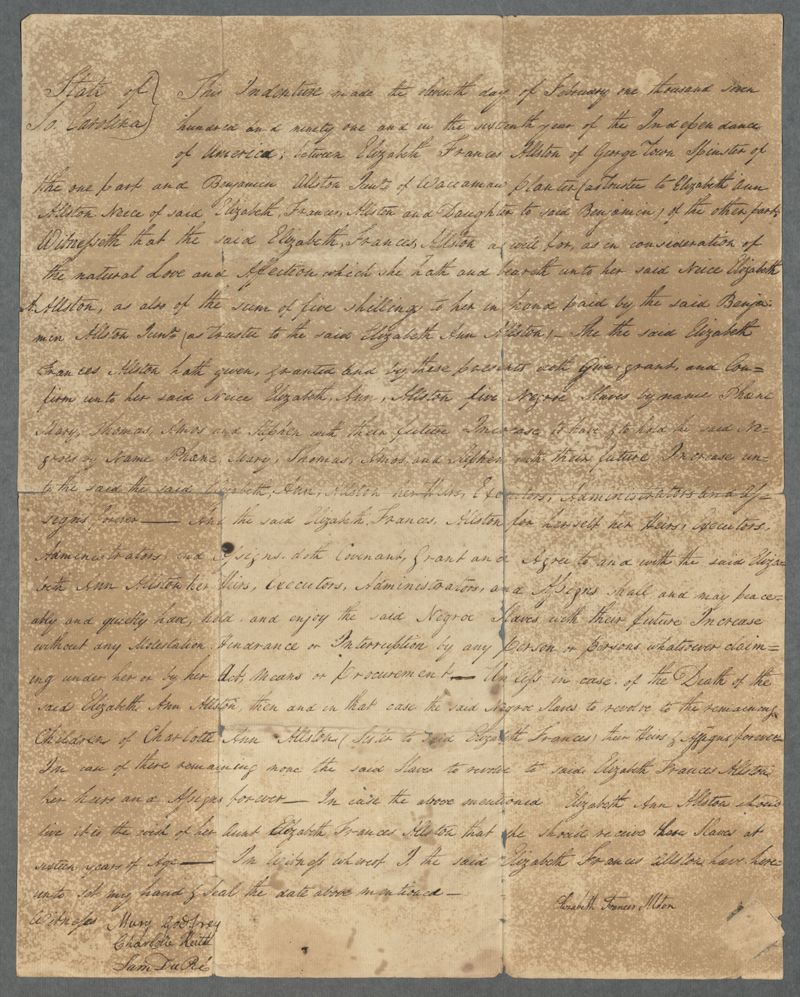 State of
So. Carolina
This Indenture made the eleventh day of February one thousand seven
hundred and ninety one and in the sixteenth year of the Independance
of America; between Elizabeth Frances Allston of George Town Spinster of
the one part and Benjamin Allston Junr. of Waccamaw planter (as Trustee to Elizabeth Ann
Allston Neice of said Elizabeth, Frances, Allston and Daughter to said Benjamin) of the other part,
Witnesseth that the said Elizabeth, Frances, Allston as well for, as in consideration of
the natural Love and Affection which she hath and beareth unto her said Neice Elizabeth
A. Allston, as also of the sum of five shillings to her in hand paid by the said Benja-
min Allston Junr. (as trustee to the said Elizabeth Ann Allston) - She the said Elizabeth
Frances Allston hath given, granted and by these presents doth Give, grant, and Con=
firm unto her said Neice Elizabeth, Ann, Allston five Negroe Slaves by name
Mary, Thomas, Amos and Stephen with their future Increase, to have & to hold the said Ne-
groes by Name Mary, Thomas, Amos, and Stephen with their future Increase un-
to the said the said Elizabeth, Ann, Allston her Heirs, Executors, Administrators and As-
signs, forever — And the said Elizabeth, Frances, Allston for herself her Heirs, Executors,
Administrators, and Assigns, doth Covenant, Grant and Agree to and with the said Eliza-
beth Ann Allston her Heirs, Executors, Administrators, and Assigns shall and may peace=
ably and quietly have, hold, and enjoy the said Negroe Slaves with their future Increase
without any Molestation, Hindrance or Interruption by any person or persons whatsoever claim=
ing under her or by her Act, Means or Procurement — Unless in case of the Death of the
said Elizabeth Ann Allston, then and in that case the said Negroe Slaves to revolve to the remaining
Children of Charlotte Ann Allston (Sister to said Elizabeth Frances) their Heirs & Assigns forever
In case of there remaining none the said Slaves to revolve to said Elizabeth Frances Allston
her heirs and Assigns forever — In case the above mentioned Elizabeth Ann Allston should
live it is the wish of her Aunt Elizabeth Frances Allston that she should receive these Slaves at
sixteen years of Age — In Witness whereof I the said Elizabeth Frances Allston have here-
unto set my hand & Seal the date above mentioned —
Elizabeth Frances Allston
Witness Mary Godfrey
Charlotte
Sam Du Ré